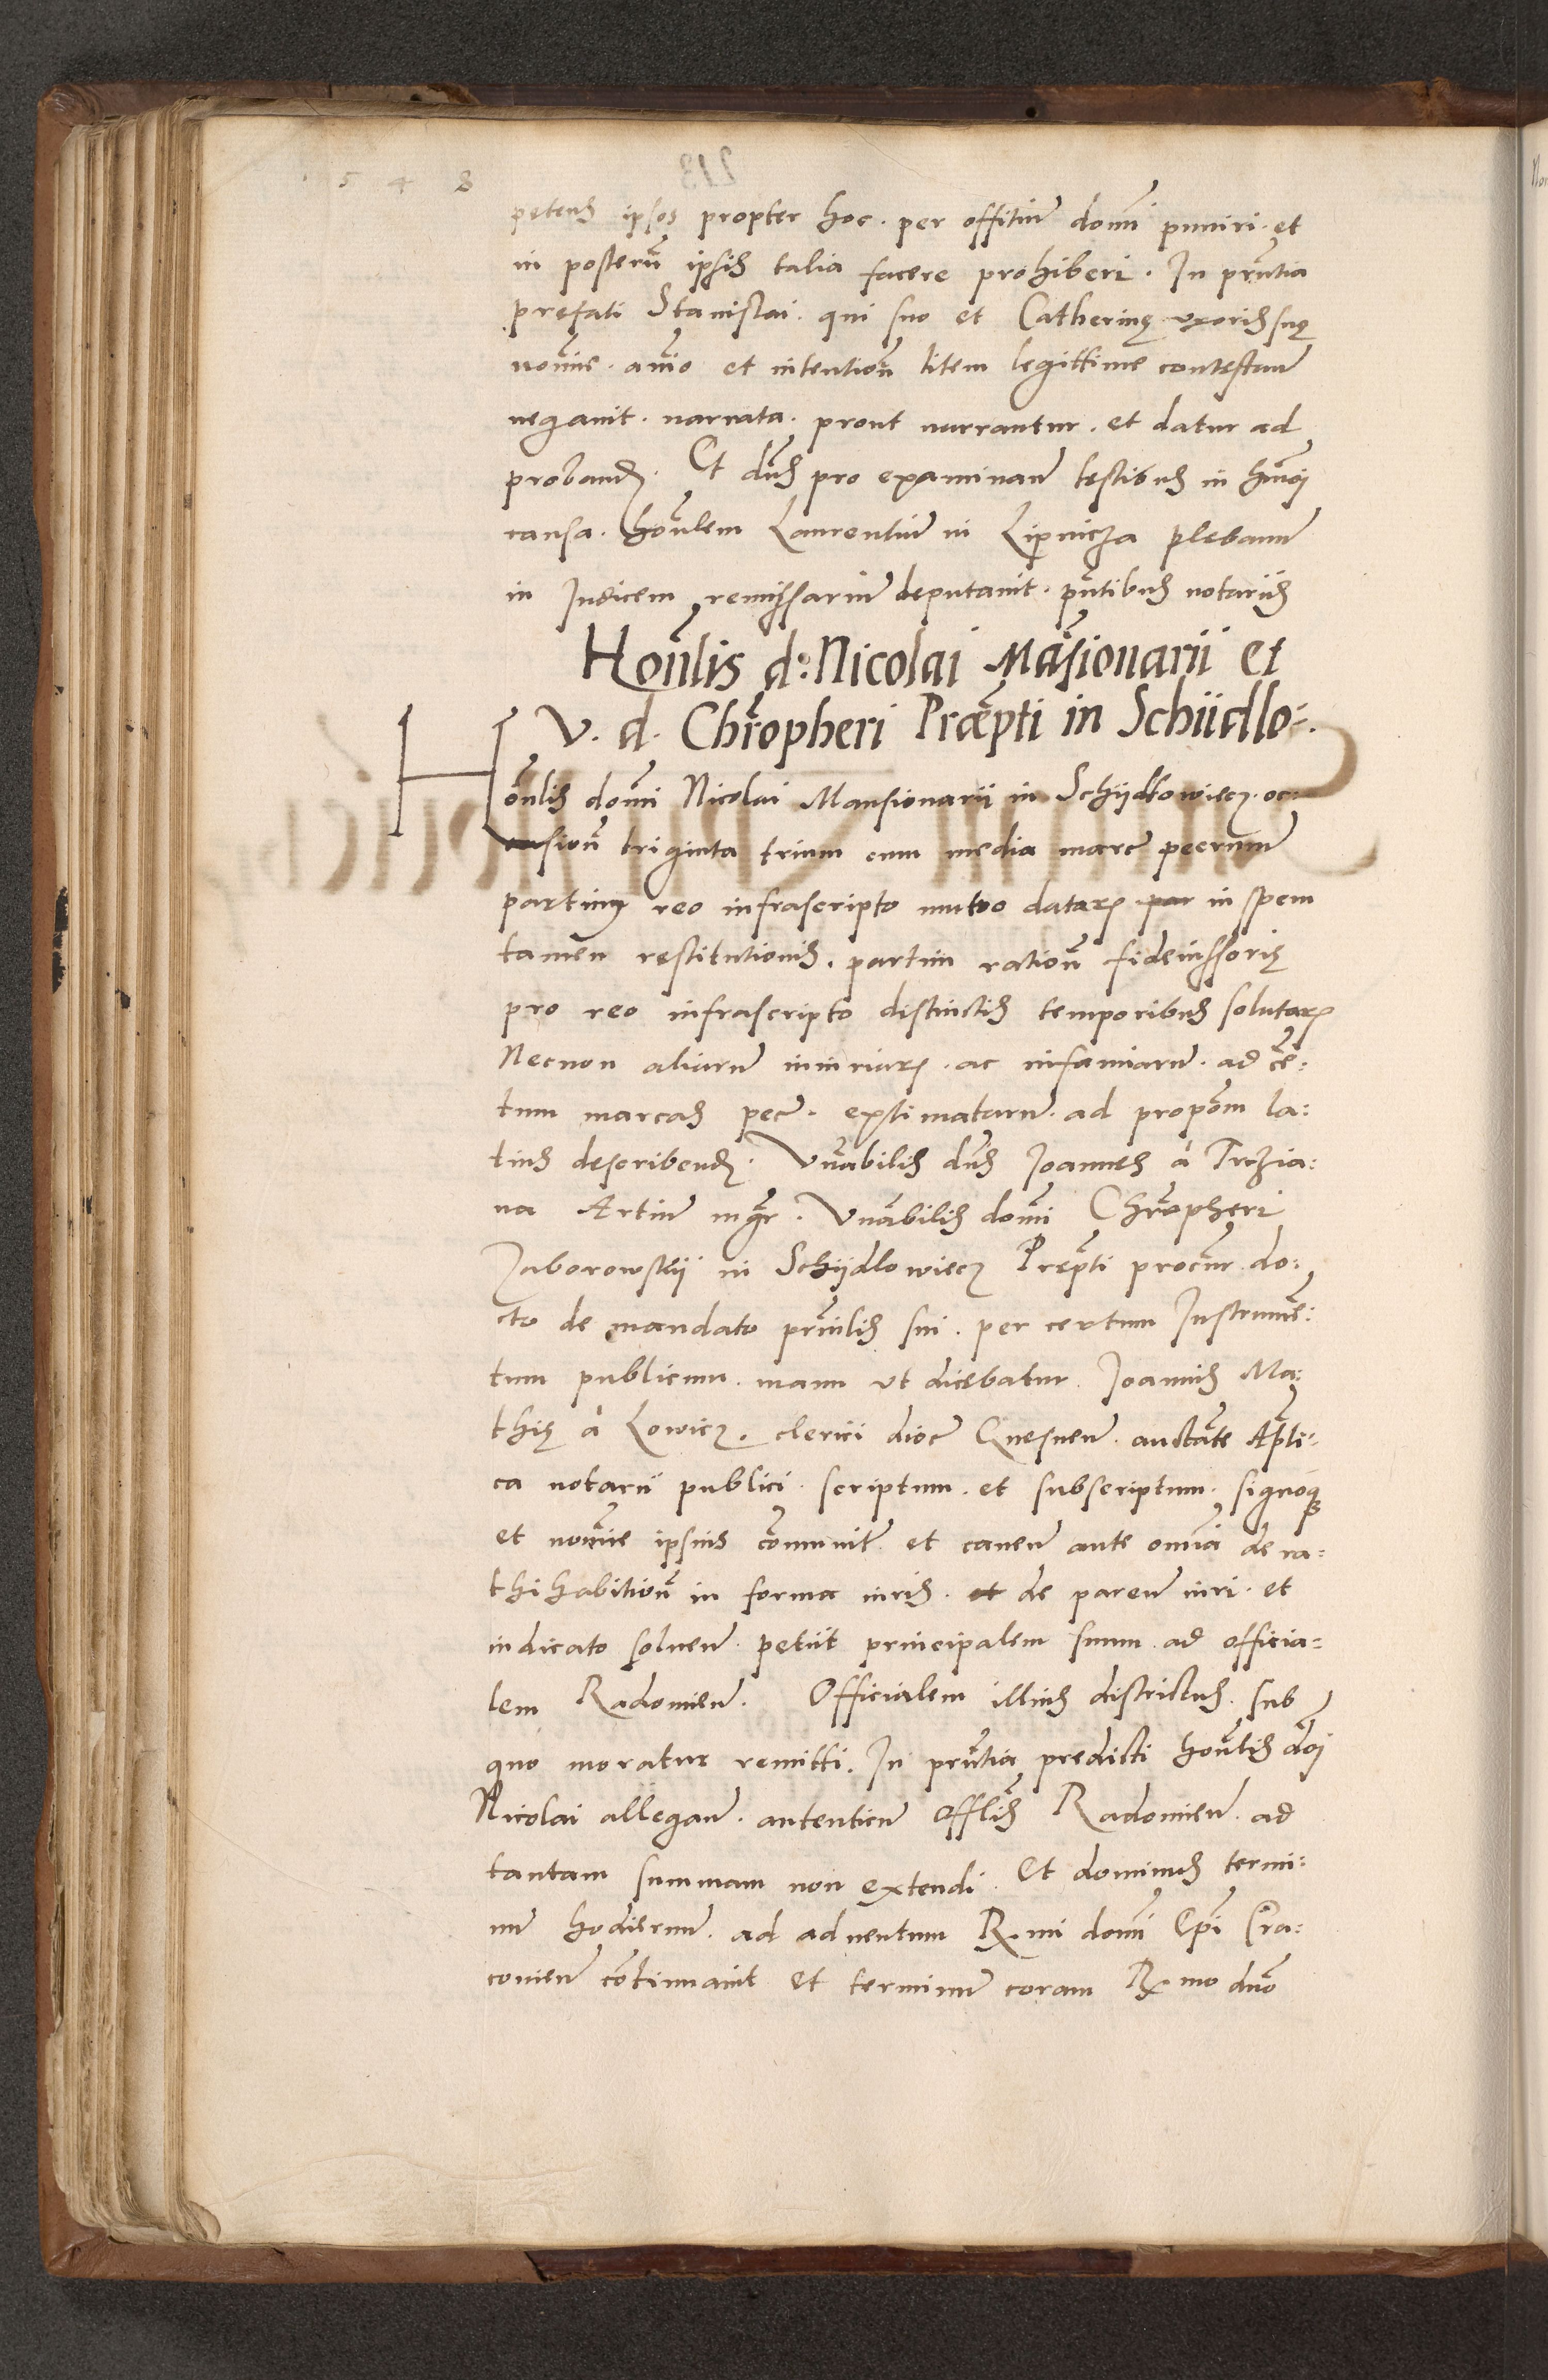 1 5 4 8
petens ipsos propter hoc. per offitiũ domĩ puniri. et
in posterũ ipsis talia facere prohiberi. In pr̃ntia
prefati Stanislai. qui suo et Catherinę uxoris suę
nomĩe. aĩo et intentioñ litem legittime contestañ
negavit. narrata. prout narrantur. et datur ad
proband. Et dñs pro examinañ testibus in hmõi
causa. honl̃em Laurentiũ in Lipnicza plebanũ
in Judicem remissariũ deputavit. pñtibus notariis
Honl̃is d: Nicolai Mãsionarii et
V. d. Chr̃opheri Præp̃ti in Schiidlo:.
Honl̃is domĩ Nicolai Mansionarii in Schiidlowiecz. oc:
casioñ triginta trium cum media marc̃ pecuniũ
partim reo infrascripto mutuo datarꝝ par in spem
tamen restitutionis. partim ratioñ fideiussorię
pro reo infrascripto distinctis temporibus solutarꝝ
Necnon aliarũ iniuriarꝝ. ac infamiarũ. ad cẽ:
tum marcas pec̃. extimatarũ. ad propõm la:
tius describend. Vñabilis dñs Joannes à Trzia:
na Artiũ mgr̃. Vñabilis domĩ Chr̃opheri
Zaborowskii in Schiidlowiecz Prep̃ti procur̃ do:
cto de mandato prinl̃is sui. per certum Instrumẽ:
tum publicum. manu ut dicebatur. Joannis Ma:
thię à Lowicz. clerici dioc̃ Gnesneñ. auctãte Apl̃i:
ca notarii publici. scriptum. et subscriptum. signoq;
et nomĩe ipsius cõmunit̃ et caveñ ante omĩa de ra:
thihabitioñ in forma iuris. et de pareñ iuri. et
iudicato solveñ. petiit principalem suum. ad officia:
lem Radomieñ. Officialem illius districtus. sub
quo moratur remitti. In pr̃ntia predicti honl̃is dñi
Nicolai allegañ. autenticũ Offl̃is Radomieñ. ad
tantam summam non extendi. Et dominus termi:
nũ hodiernũ. ad adventum R. mi domĩ Ep̃i Cra:
covieñ cõtinuavit et terminũ coram R. mo dño